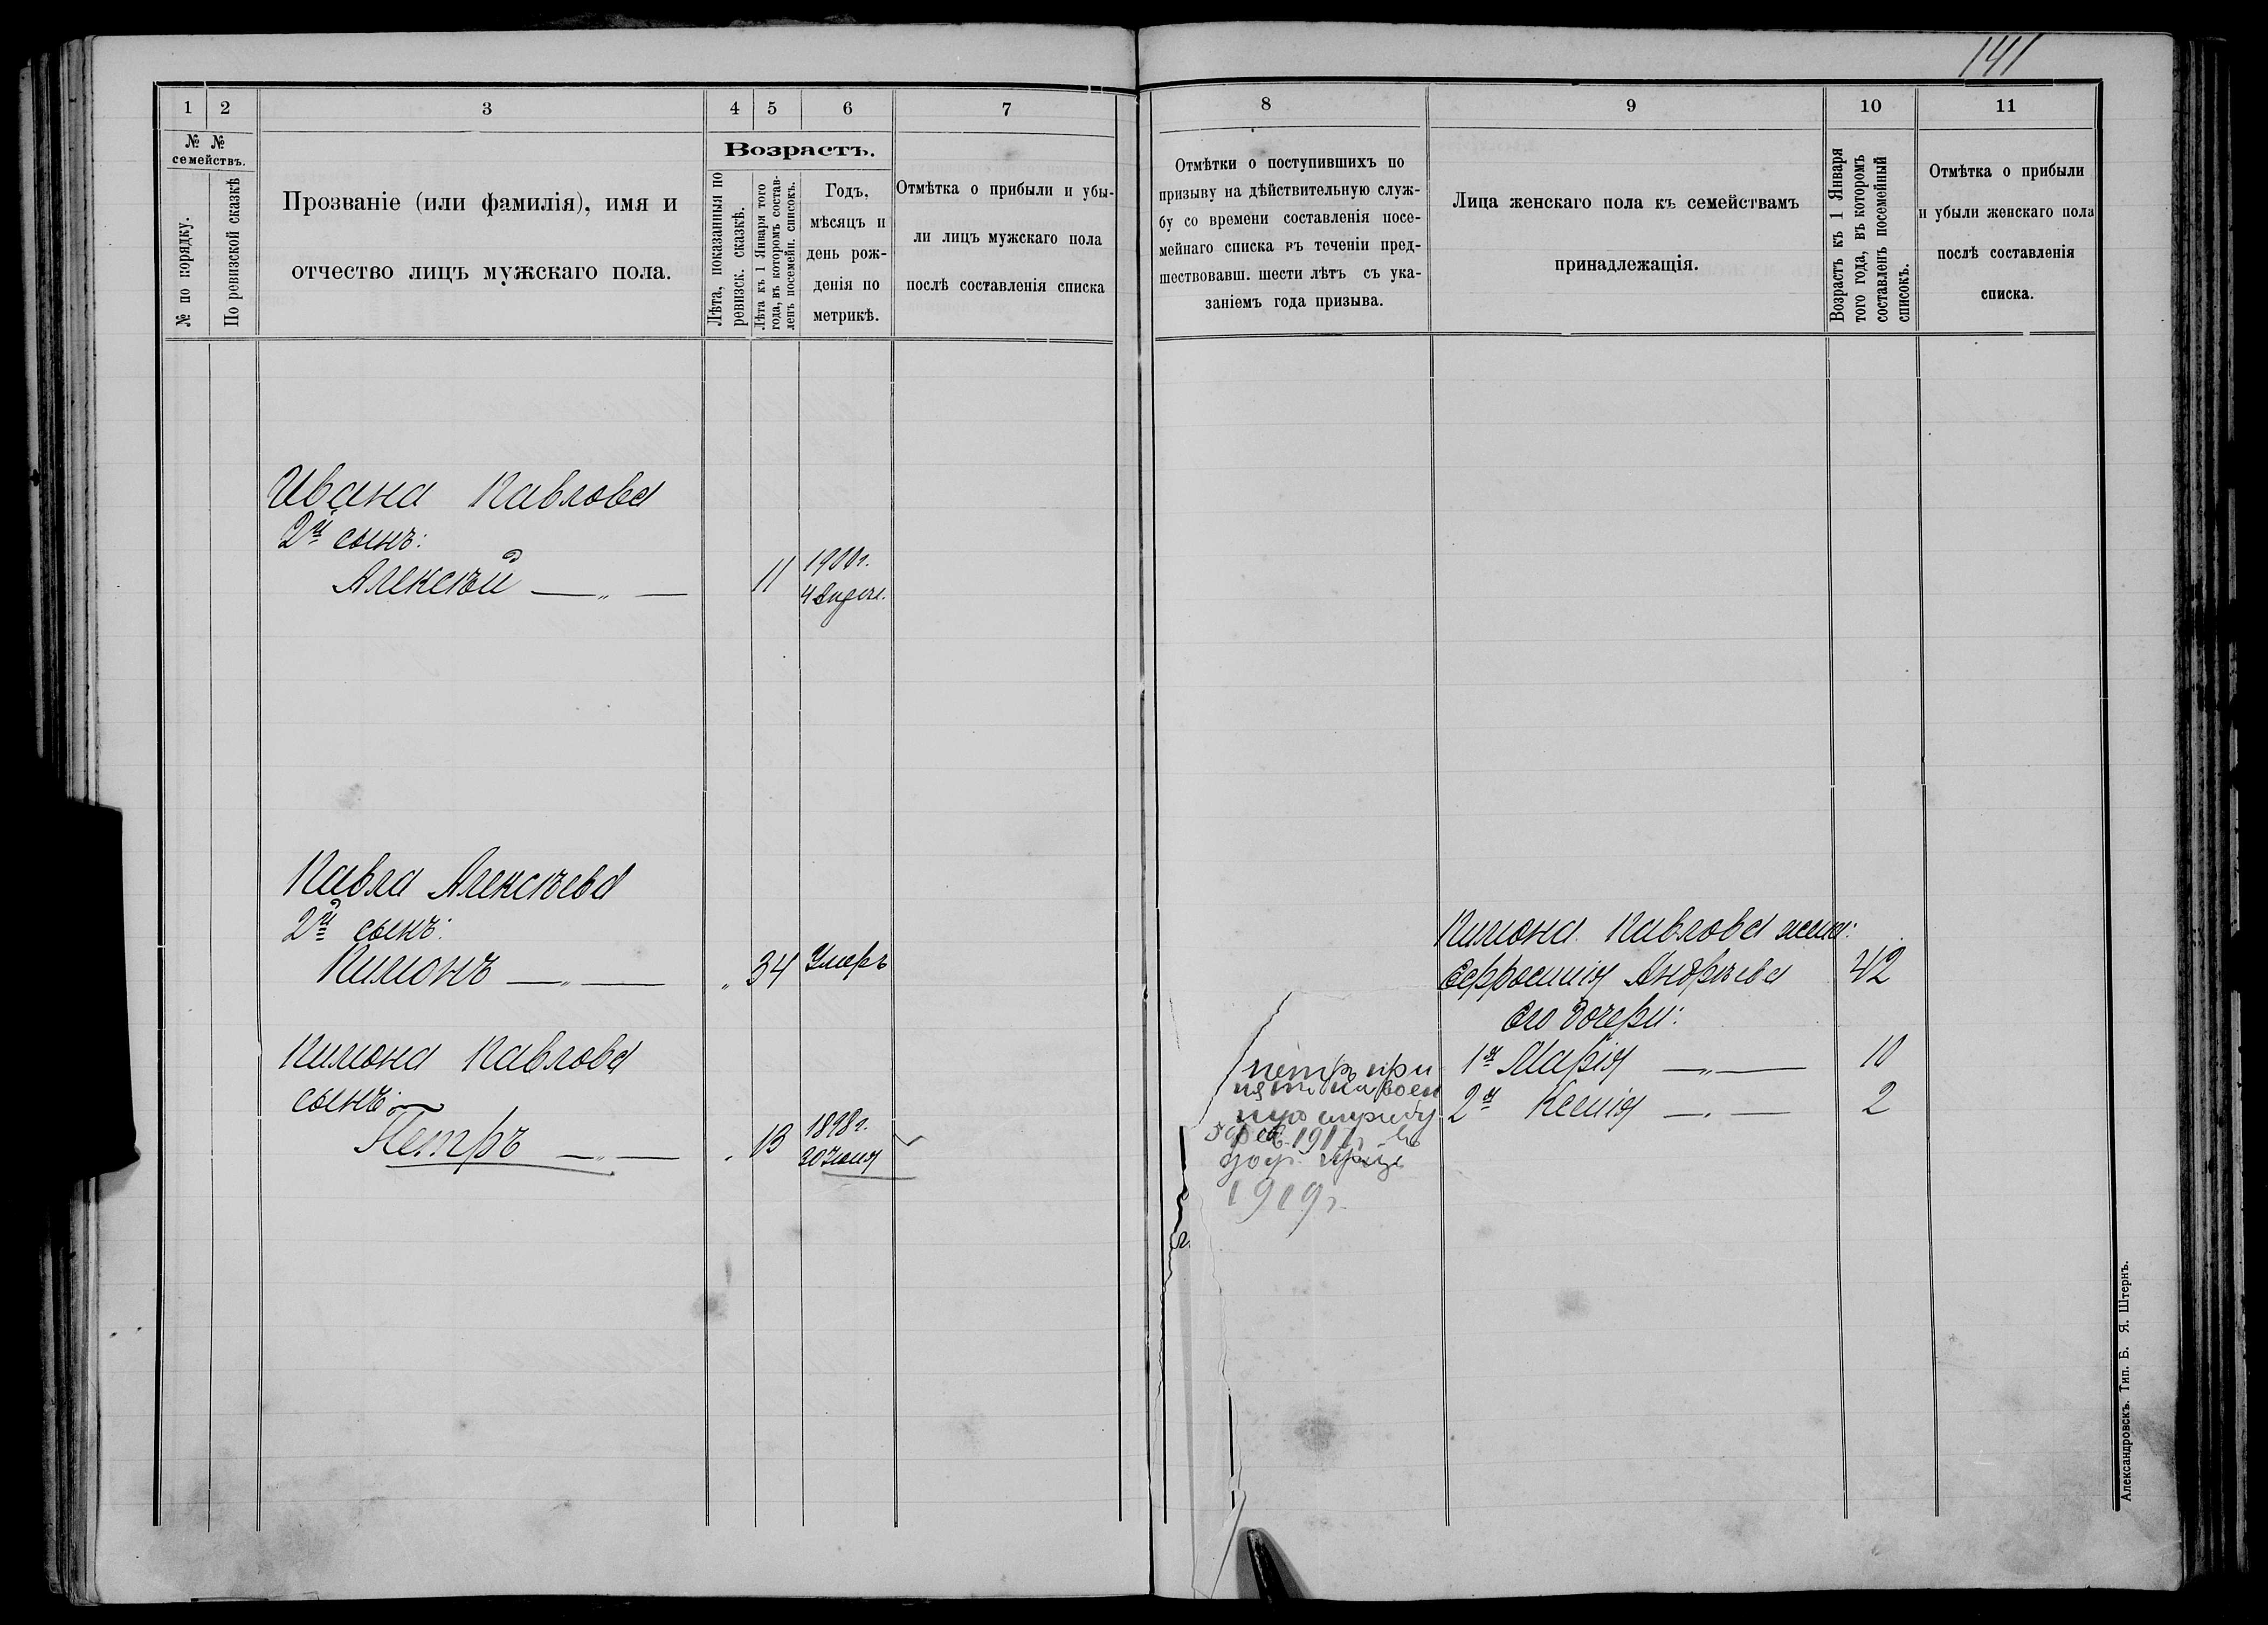 141
1 2 3 4 5 6 7
№ №
семействъ.
№ по порядку.
По ревизской сказкѣ
Прозваніе (или фамилія), имя и
отчество лицъ мужскаго пола.
Возрастъ.
Лѣта, показанныя по
ревизск. сказкѣ.
Лѣта къ 1 Января того
года, въ которомъ состав-
ленъ посемейн. списокъ.
Годъ,
мѣсяцъ и
день рож-
денія по
метрикѣ.
Отмѣтка о прибыли и убы-
ли лицъ мужскаго пола
послѣ составленія списка
Ивана Павлова
2й сынъ:
Алексѣй — „ — 11 1900г.
4
Павла Алексѣева
2й сынъ:
Пимонъ — „ — „ 34 Умеръ
Пимона Павлова
сынъ:
Петръ — „ — „ 13 1898г.
30 Іюня
8 9 10 11
Отмѣтки о поступившихъ по
призыву на дѣйствительную служ-
бу со времени составленія посе-
мейнаго списка въ теченіи пред-
шествовавш. шести лѣтъ съ ука-
заніемъ года призыва.
Лица женскаго пола къ семействамъ
принадлежащія.
Возрастъ къ 1 Января
того года, въ которомъ
составленъ посемейный
списокъ.
Отмѣтка о прибыли
и убыли женскаго пола
послѣ составленія
списка.
Пимона Павлова жена:
Ефросинія Андрѣева 42
Его дочери:
1я Марія — „ — 10
2я Ксенія — „ — 2
Петръ при
нятъ на воен
ную службу
5 фев. 1917г.
1919г.
Александровскъ. Тип. Б. Я. Штернъ.